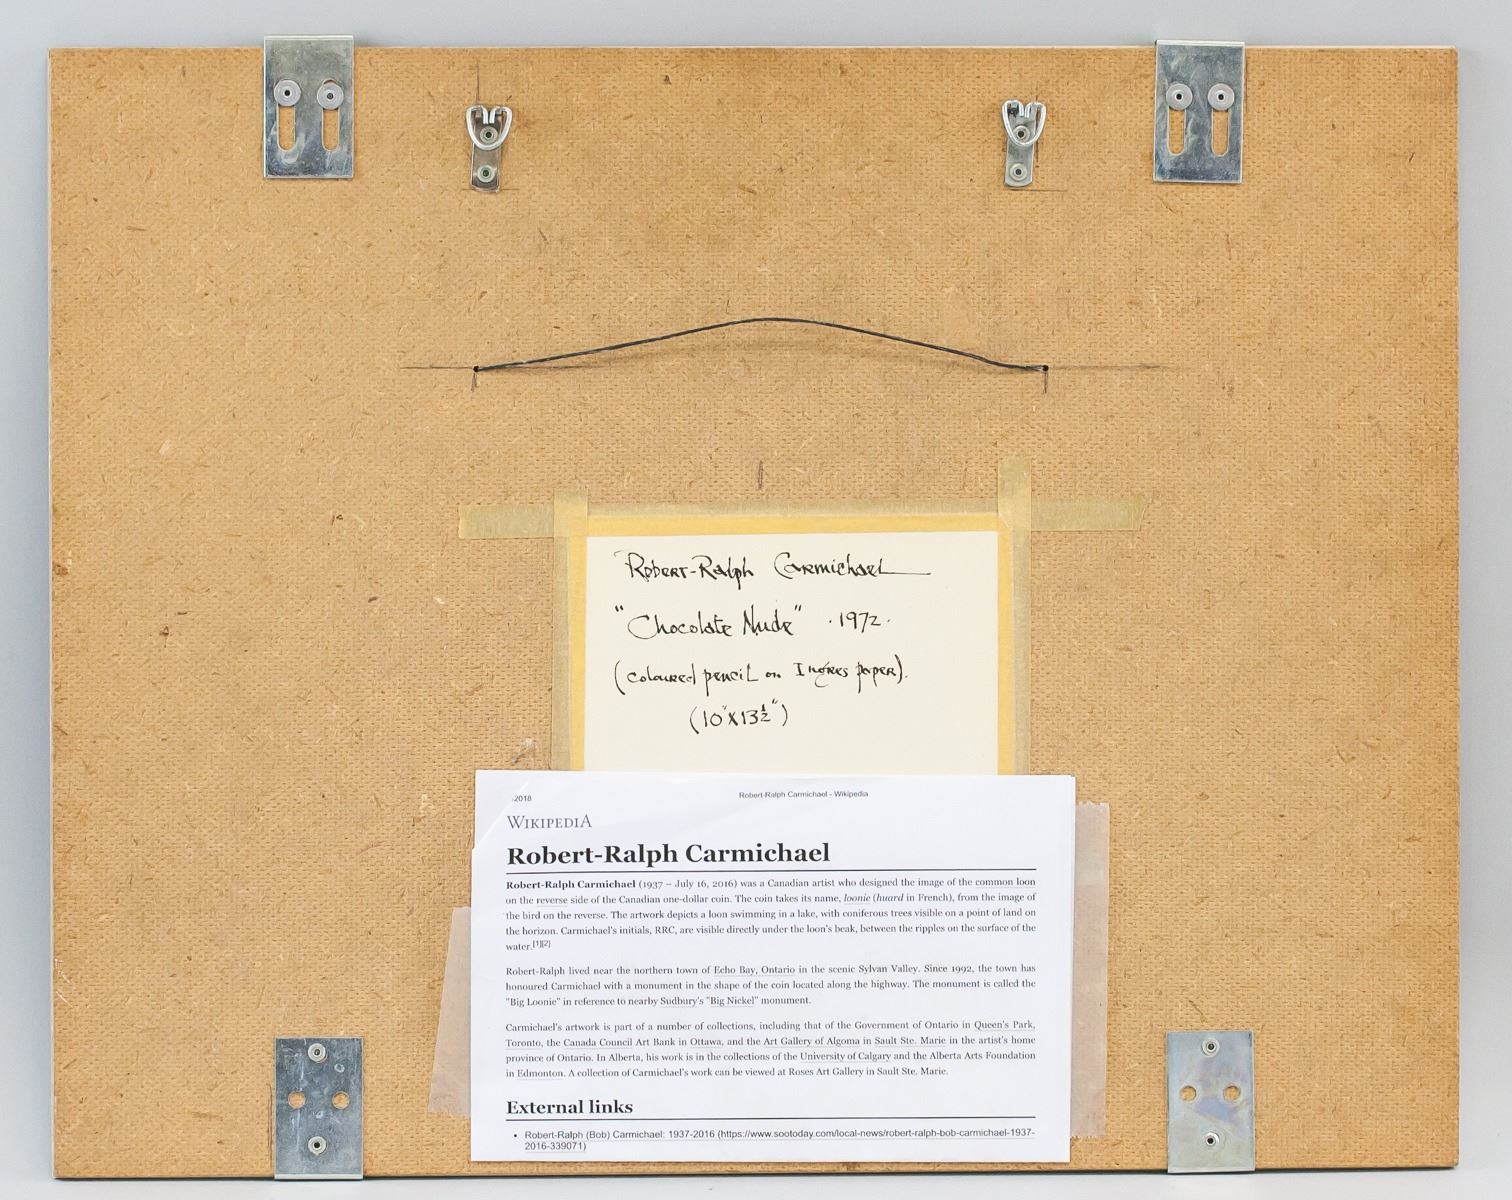 Robert-Ralph Carmichael
"Chocolate Nude" · 1972 ·
(coloured pencil on Ingres paper).
(10"x13½")
-2018 Robert-Ralph Carmichael - Wikipedia
WIKIPEDIA
Robert-Ralph Carmichael
Robert-Ralph Carmichael (1937 – July 16, 2016) was a Canadian artist who designed the image of the common loon
on the reverse side of the Canadian one-dollar coin. The coin takes its name, loonie (huard in French), from the image of
the bird on the reverse. The artwork depicts a loon swimming in a lake, with coniferous trees visible on a point of land on
the horizon. Carmichael's initials, RRC, are visible directly under the loon's beak, between the ripples on the surface of the
water.[1][2]
Robert-Ralph lived near the northern town of Echo Bay, Ontario in the scenic Sylvan Valley. Since 1992, the town has
honoured Carmichael with a monument in the shape of the coin located along the highway. The monument is called the
"Big Loonie" in reference to nearby Sudbury's "Big Nickel" monument.
Carmichael's artwork is part of a number of collections, including that of the Government of Ontario in Queen's Park,
Toronto, the Canada Council Art Bank in Ottawa, and the Art Gallery of Algoma in Sault Ste. Marie in the artist's home
province of Ontario. In Alberta, his work is in the collections of the University of Calgary and the Alberta Arts Foundation
in Edmonton. A collection of Carmichael's work can be viewed at Roses Art Gallery in Sault Ste. Marie.
External links
• Robert-Ralph (Bob) Carmichael: 1937-2016 (https://www.sootoday.com/local-news/robert-ralph-bob-carmichael-1937-
2016-339071)